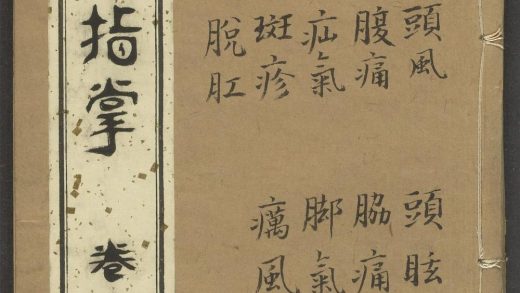 頭風 頭眩
腹痛 脇痛
疝氣 脚氣
斑疹 癘風
脫肛
指掌 卷